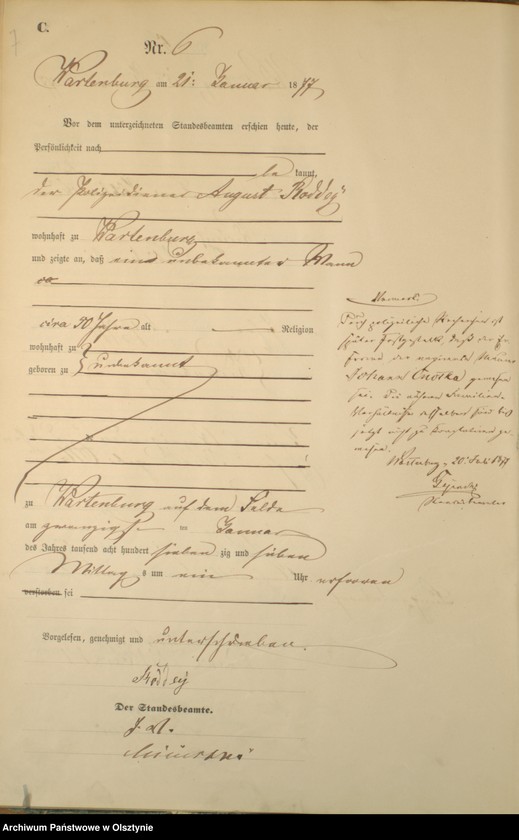 C.
7
Nr. 6
Wartenburg am 21: Januar 1877
Vor dem unterzeichneten Standesbeamten erschien heute, der
Persönlichkeit nach
be kannt,
der Polizeidiener August Roddey
wohnhaft zu Wartenburg
und zeigte an, daß ein unbekannter Mann
circa 30 Jahre alt Religion
wohnhaft zu
geboren zu unbekannt
zu Wartenburg auf dem Felde
am zwanzigst en Januar
des Jahres tausend acht hundert sieben zig und sieben
Mittag s um ein Uhr erfroren
verstorben sei
Vorgelesen, genehmigt und unterschrieben.
Roddey
Der Standesbeamte.
Vermerk.
Durch polizeiliche Recherchen ist
später festgestellt, daß der
Johann gewesen
sei. Die nähern Familien
jetzt nicht zu
Wartenburg, 20. Juli 1877
Archiwum Państwowe w Olsztynie